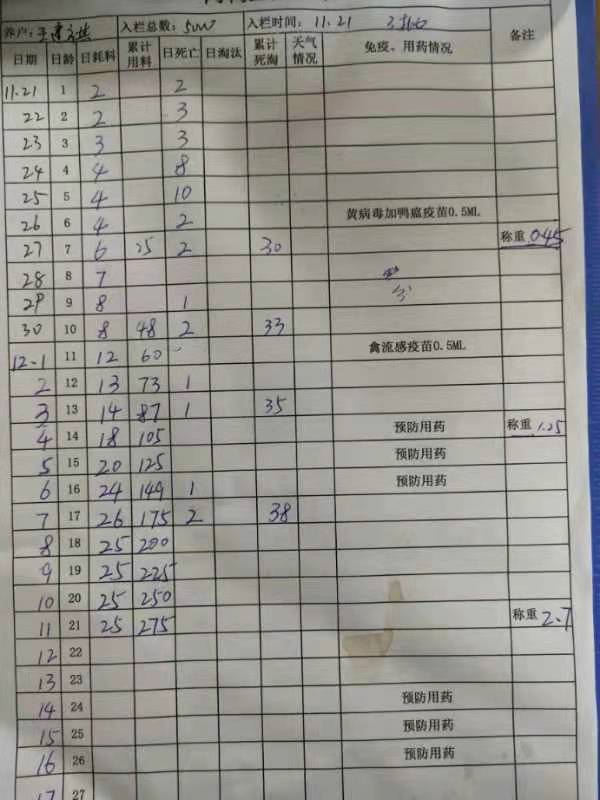 养户: 入栏总数: 5000 入栏时间: 11.21
日期 日龄 日耗料 累计用料 日死亡 日淘汰 累计死淘 天气情况 免疫、用药情况 备注
11.21 1 2 2
22 2 2 3
23 3 3 3
24 4 4 8
25 5 4 10
26 6 4 2 黄病毒加鸭瘟疫苗0.5ML
27 7 6 25 2 30 称重 0.45
28 8 7
29 9 8 1
30 10 8 48 2 33
12-1 11 12 60 禽流感疫苗0.5ML
2 12 13 73 1
3 13 14 87 1 35
4 14 18 105 预防用药 称重 1.25
5 15 20 125 预防用药
6 16 24 149 1 预防用药
7 17 26 175 2 38
8 18 25 200
9 19 25 225
10 20 25 250
11 21 25 275 称重 2.7
12 22
13 23
14 24 预防用药
15 25 预防用药
16 26 预防用药
17 27